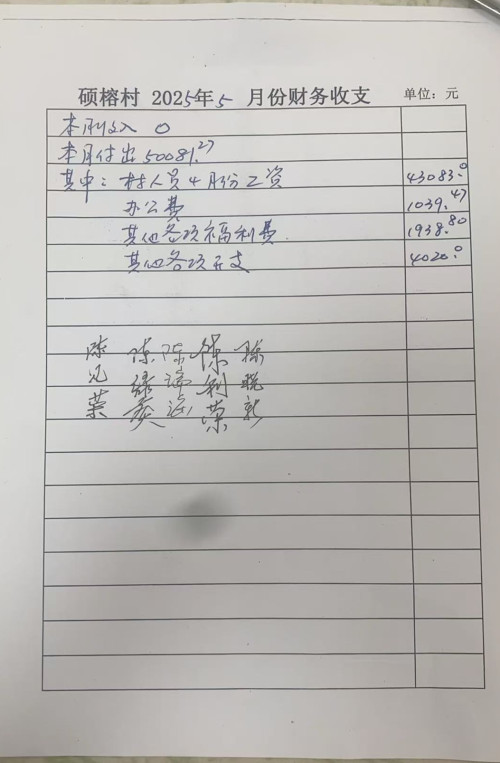 硕榕村 2025年5月份财务收支 单位：元
本月收入 0
本月付出50081.27
其中：村人员4月份工资 43083.0
办公费 1039.47
其他各项福利费 1938.80
其他各项开支 4020.0
陈 陈 陈 陈 陈
兄 绿 瑞 利
荣 荣 新